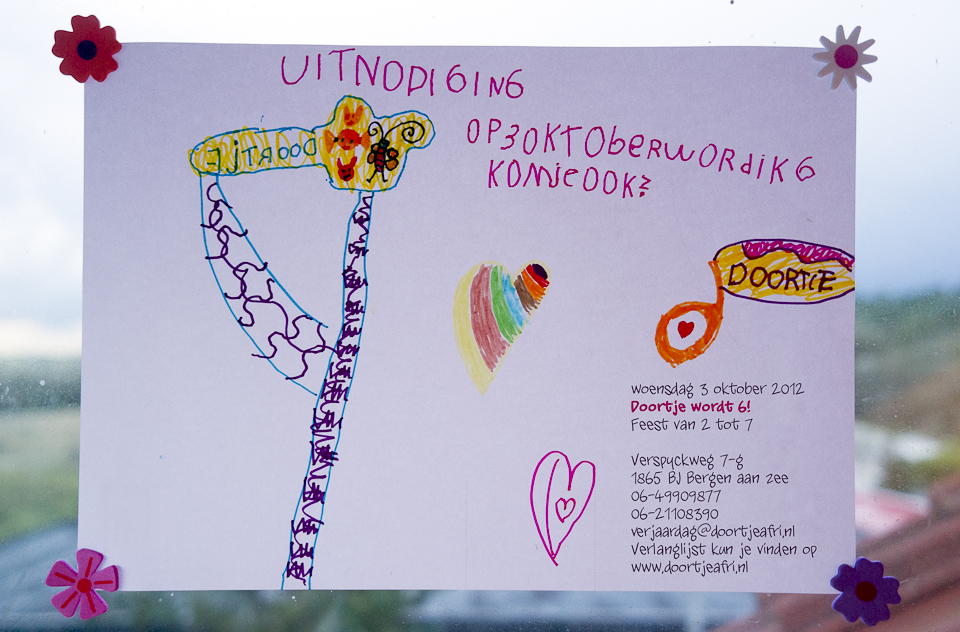 UITNODIGING
OP3OKTOberwORDiK6
KOMjeOOK?
DOORTJE
DOORTJE
woensdag 3 oktober 2012
Doortje wordt 6!
Feest van 2 tot 7
Verspyckweg 7-g
1865 BJ Bergen aan zee
06-49909877
06-21108390
verjaardag@doortjeafri.nl
Verlanglijst kun je vinden op
www.doortjeafri.nl